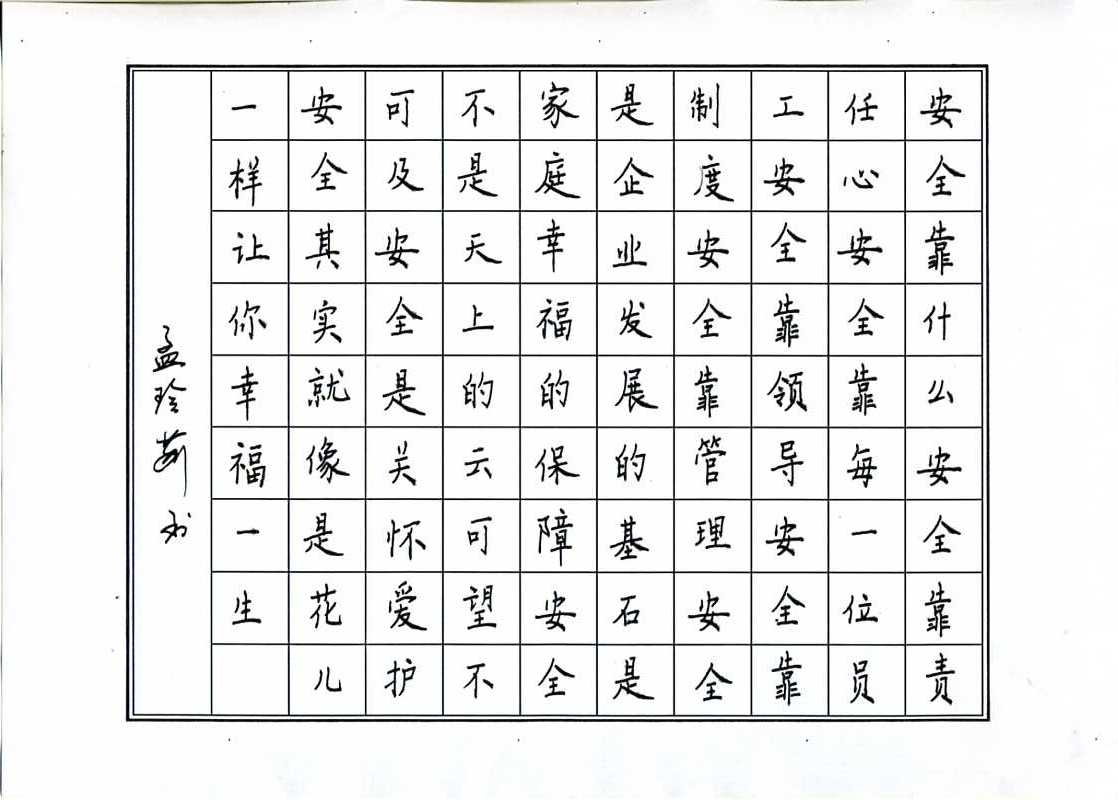 安全靠什么安全靠责
任心安全靠每一位员
工安全靠领导安全靠
制度安全靠管理安全
是企业发展的基石是
家庭幸福的保障安全
不是天上的云可望不
可及安全是关怀爱护
安全其实就像是花儿
一样让你幸福福一生